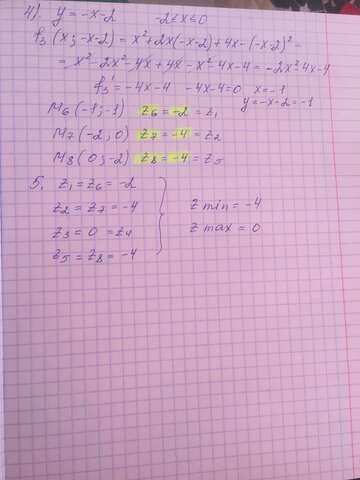 4) y = -x-2    -2≤x≤0
f₃(x; -x-2) = x²+2x(-x-2)+4x-(-x-2)² =
= x²-2x²-4x+4x-x²-4x-4=-2x²-4x-4
f₃' = -4x-4   -4x-4=0   x=-1
y=-x-2=-1
M₆(-1;-1)   z₆=-2=z₁
M₇(-2,0)   z₇=-4=z₂
M₈(0;-2)   z₈=-4=z₅
5. z₁=z₆=-2
z₂=z₇=-4   z min = -4
z₃=0=z₄   z max = 0
z₅=z₈=-4